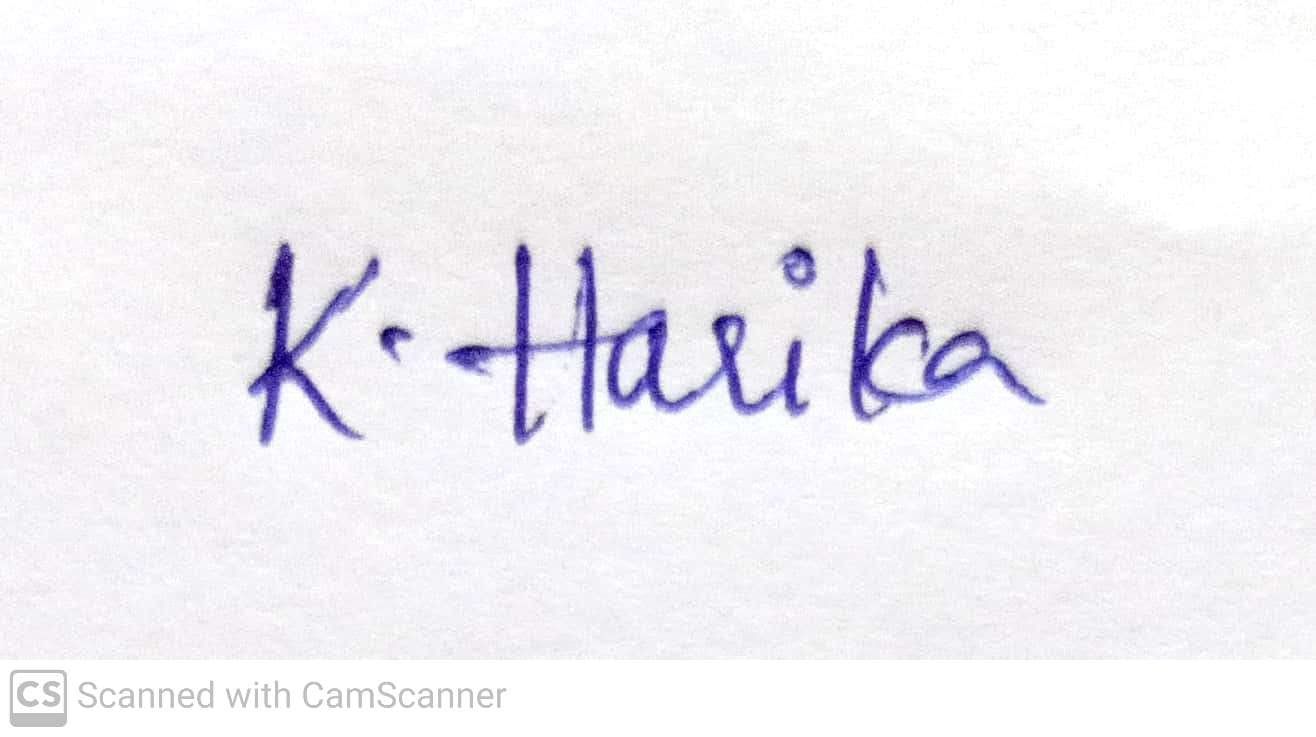 K. Harika
CS Scanned with CamScanner